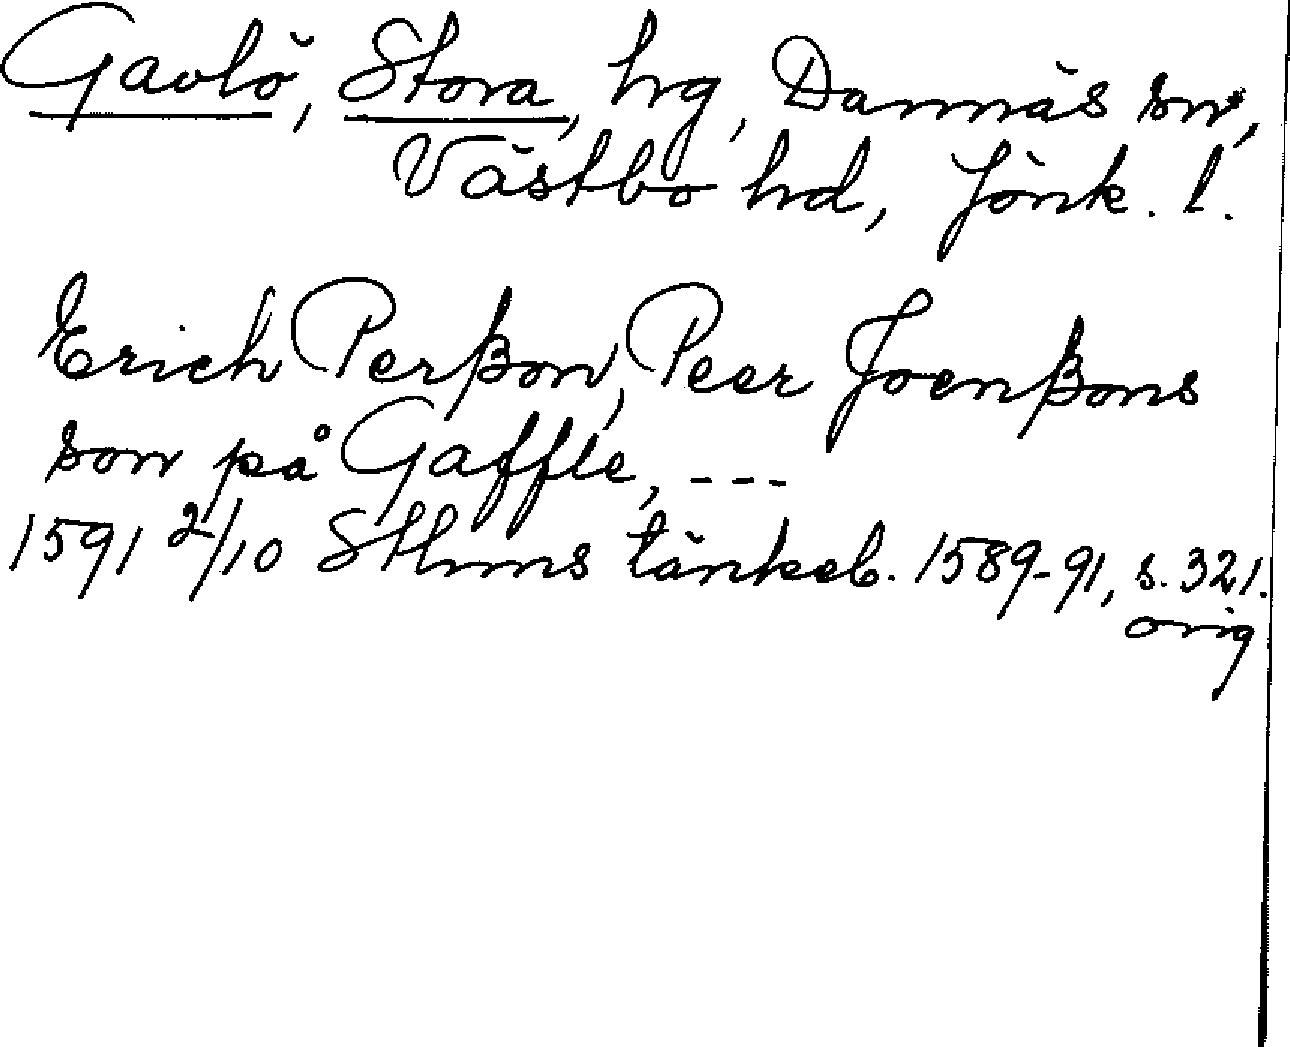 Gavlö, Stora, hg, Dannäs sn,
Västbo hd, Jönk. l.
Erich Perßon, Peer Joenßons
son på Gaffle, ---
1591 2/10 Sthms tänkeb. 1589-91, s. 321.
orig